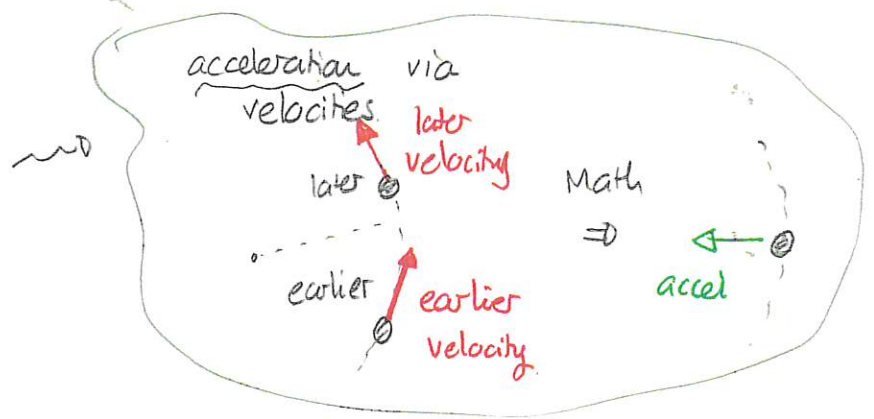 acceleration via
velocites
later
velocity
later
Math
⇒
earlier
earlier
velocity
accel